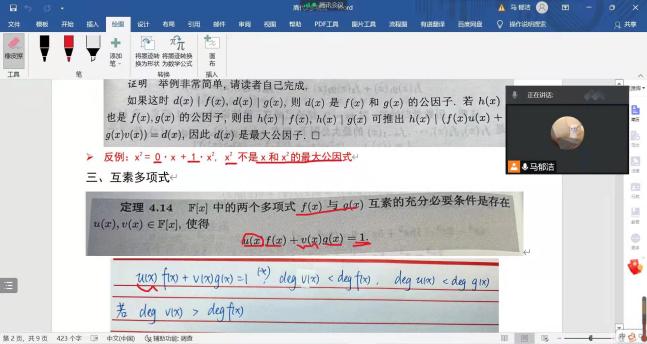 腾讯会议
马 郁洁
文件
开始
插入
绘图
设计
布局
引用
邮件
审阅
视图
帮助
PDF工具
图片工具
流程图
有道翻译
百度网盘
操作说明搜索
共享
橡皮擦
添加笔
将墨迹转换为形状
将墨迹转换为数学公式
画布
工具
笔
转换
插入
正在讲话:
马郁洁
证明 举例非常简单, 请读者自己完成.
如果这时 d(x) | f(x), d(x) | g(x), 则 d(x) 是 f(x) 和 g(x) 的公因子. 若 h(x)
也是 f(x), g(x) 的公因子, 则由 h(x) | f(x), h(x) | g(x) 可推出 h(x) | (f(x)u(x) +
g(x)v(x)) = d(x), 因此 d(x) 是最大公因子. □
➤ 反例：x² = 0 · x + 1 · x², x² 不是 x 和 x² 的最大公因式
三、互素多项式
定理 4.14 𝔽[x] 中的两个多项式 f(x) 与 g(x) 互素的充分必要条件是存在
u(x), v(x) ∈ 𝔽[x], 使得
u(x)f(x) + v(x)g(x) = 1.
u(x) f(x) + v(x)g(x) = 1 (*) ? deg v(x) < deg f(x), deg u(x) < deg g(x)
若 deg v(x) > deg f(x)
第 2 页, 共 9 页
423 个字
中文(中国)
辅助功能: 调查